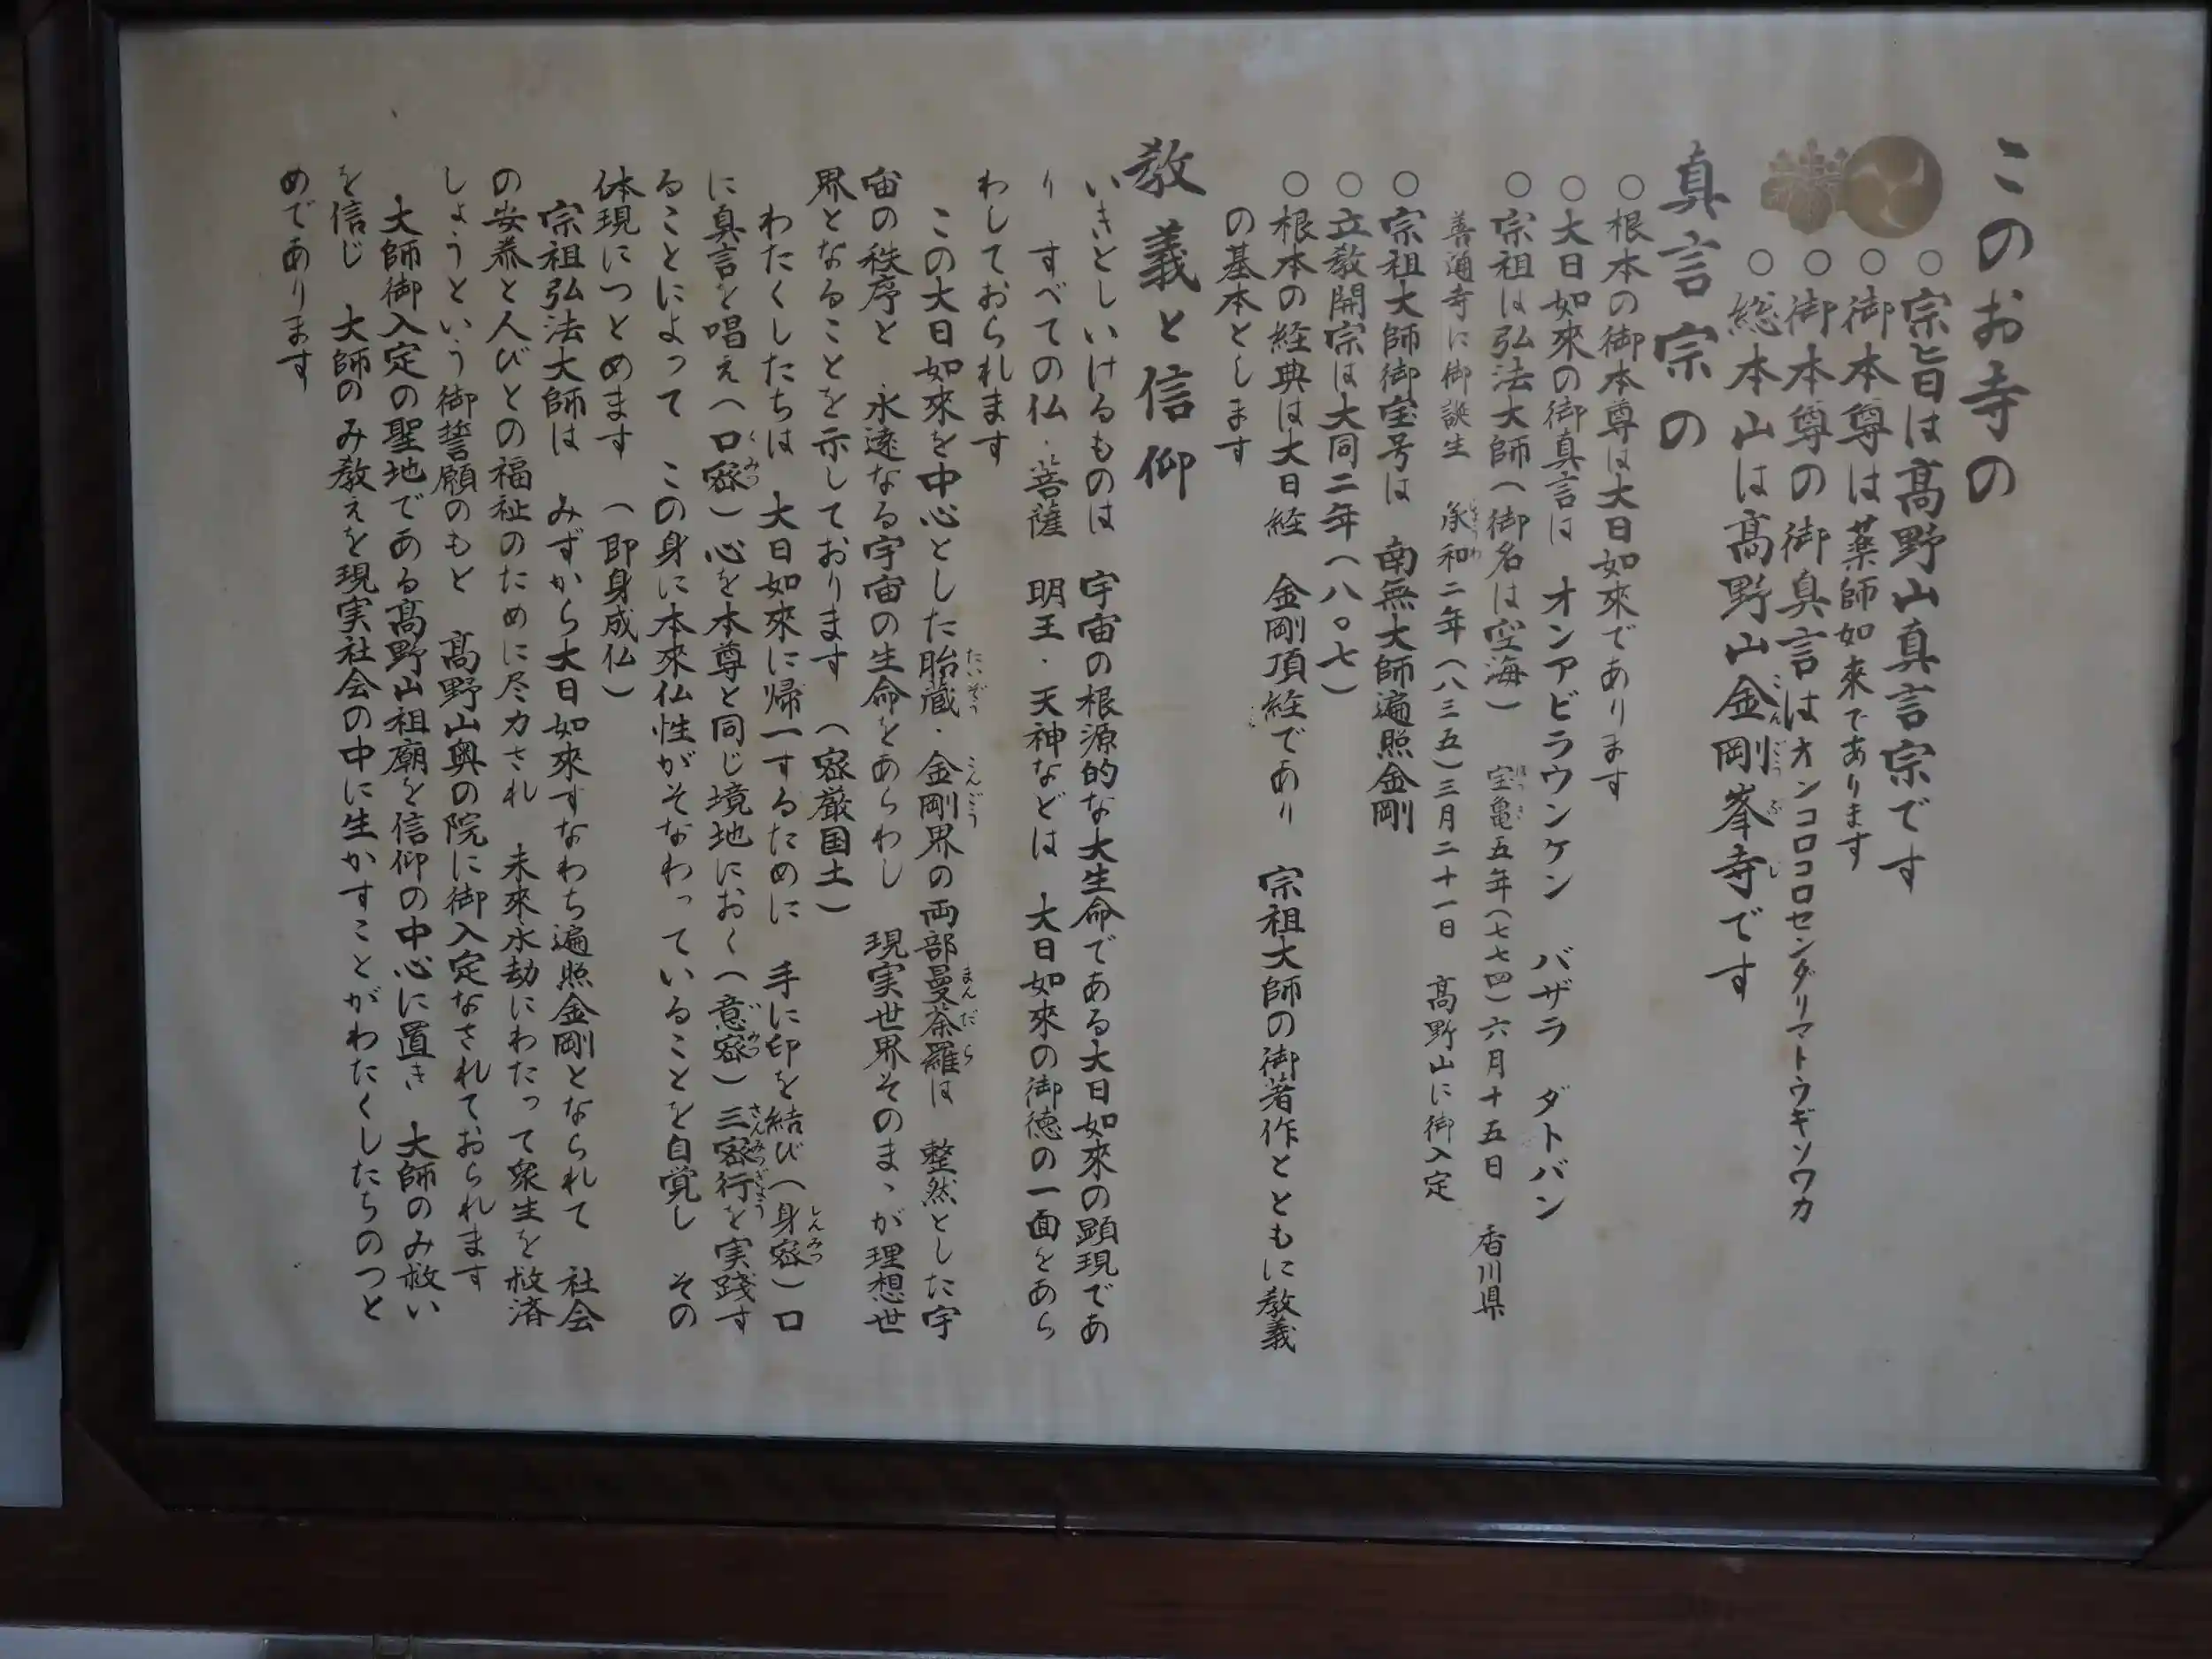 このお寺の
○宗旨は高野山真言宗です
○御本尊は薬師如来であります
○御本尊の御真言はオンコロコロセンダリマトウギソワカ
○総本山は高野山金剛峯寺です
真言宗の
○根本の御本尊は大日如來であります
○大日如來の御真言は　オンアビラウンケン　バザラ　ダトバン
○宗祖は弘法大師（御名は空海）　宝亀五年（七七四）六月十五日　香川県
善通寺に御誕生　承和二年（八三五）三月二十一日　高野山に御入定
○宗祖大師御宝号は　南無大師遍照金剛
○立教開宗は大同二年（八〇七）
○根本の経典は大日経　金剛頂経であり　宗祖大師の御著作とともに教義
の基本とします
教義と信仰
いきとしいけるものは　宇宙の根源的な大生命である大日如來の顕現であ
り　すべての仏・菩薩　明王・天神などは　大日如來の御徳の一面をあら
わしておられます
この大日如來を中心とした胎蔵・金剛界の両部曼荼羅は　整然とした宇
宙の秩序と　永遠なる宇宙の生命をあらわし　現実世界そのまゝが理想世
界となることを示しております　（密厳国土）
わたくしたちは　大日如來に帰一するために　手に印を結び（身密）口
に真言を唱え（口密）心を本尊と同じ境地におく（意密）三密行を実践す
ることによって　この身に本來仏性がそなわっていることを自覚し　その
体現につとめます　（即身成仏）
宗祖弘法大師は　みずから大日如來すなわち遍照金剛となられて　社会
の安泰と人びとの福祉のために尽力され　未來永劫にわたって衆生を救済
しようという御誓願のもと　高野山奥の院に御入定なされておられます
大師御入定の聖地である高野山祖廟を信仰の中心に置き　大師のみ救い
を信じ　大師のみ教えを現実社会の中に生かすことがわたくしたちのつと
めであります